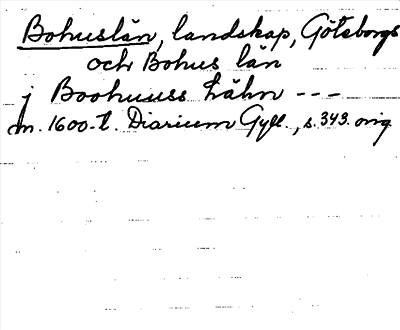 Bohuslän, landskap, Göteborgs
och Bohus län
j Boohuuss Lähn ---
m. 1600-t. Diarium Gyll., s. 343. orig